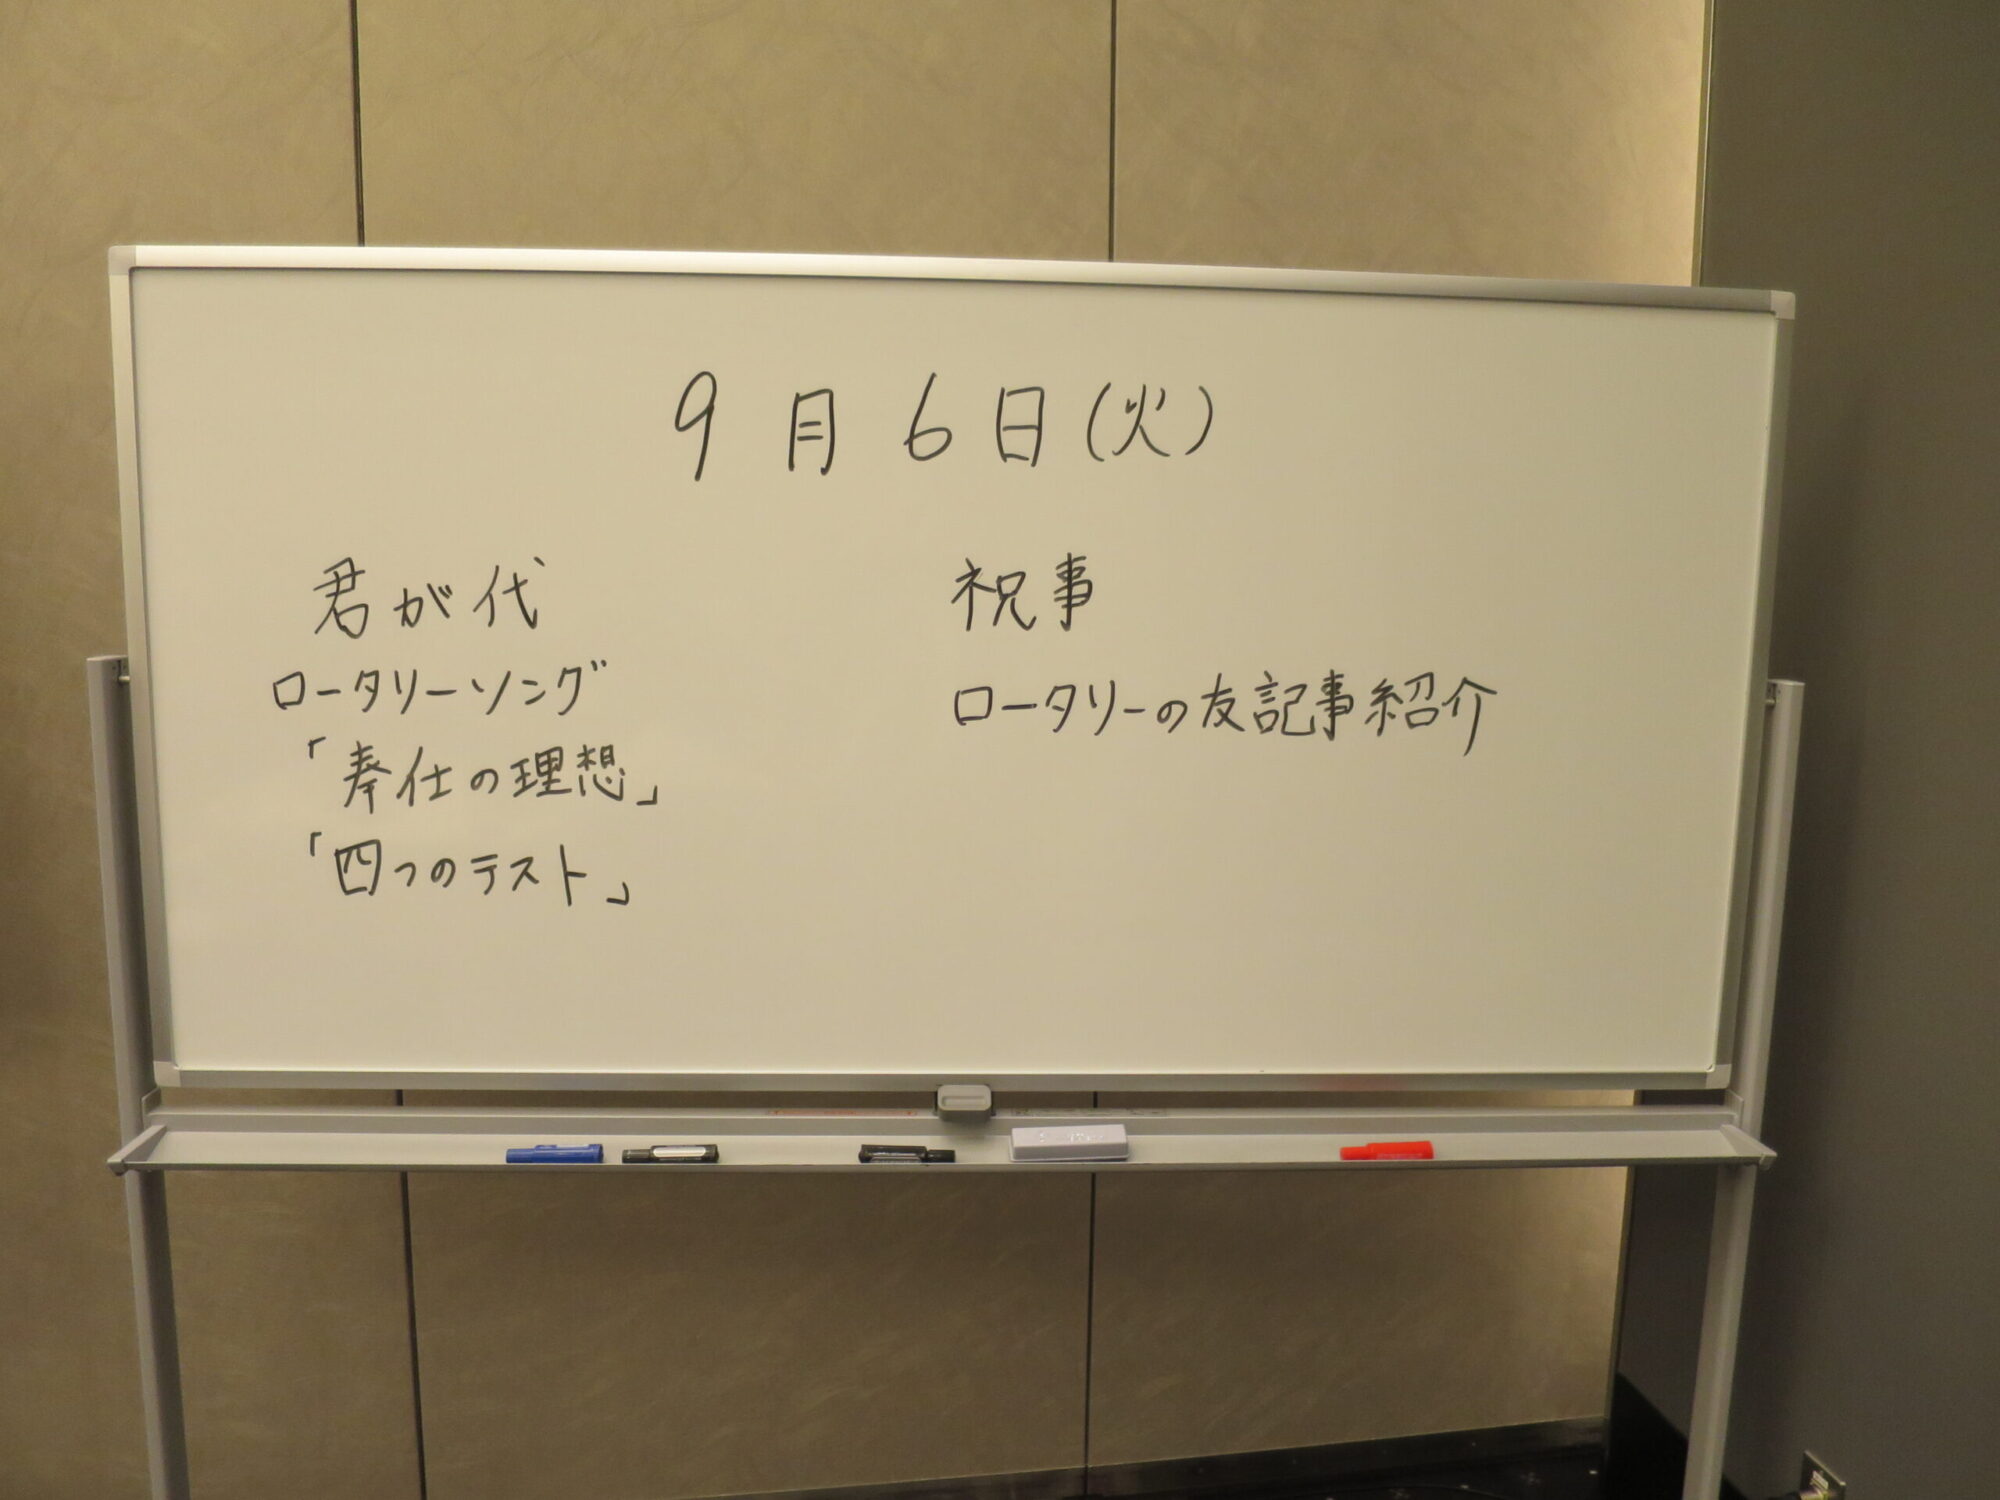 9月6日(火)
君が代
ロータリーソング
「奉仕の理想」
「四つのテスト」
祝事
ロータリーの友記事紹介